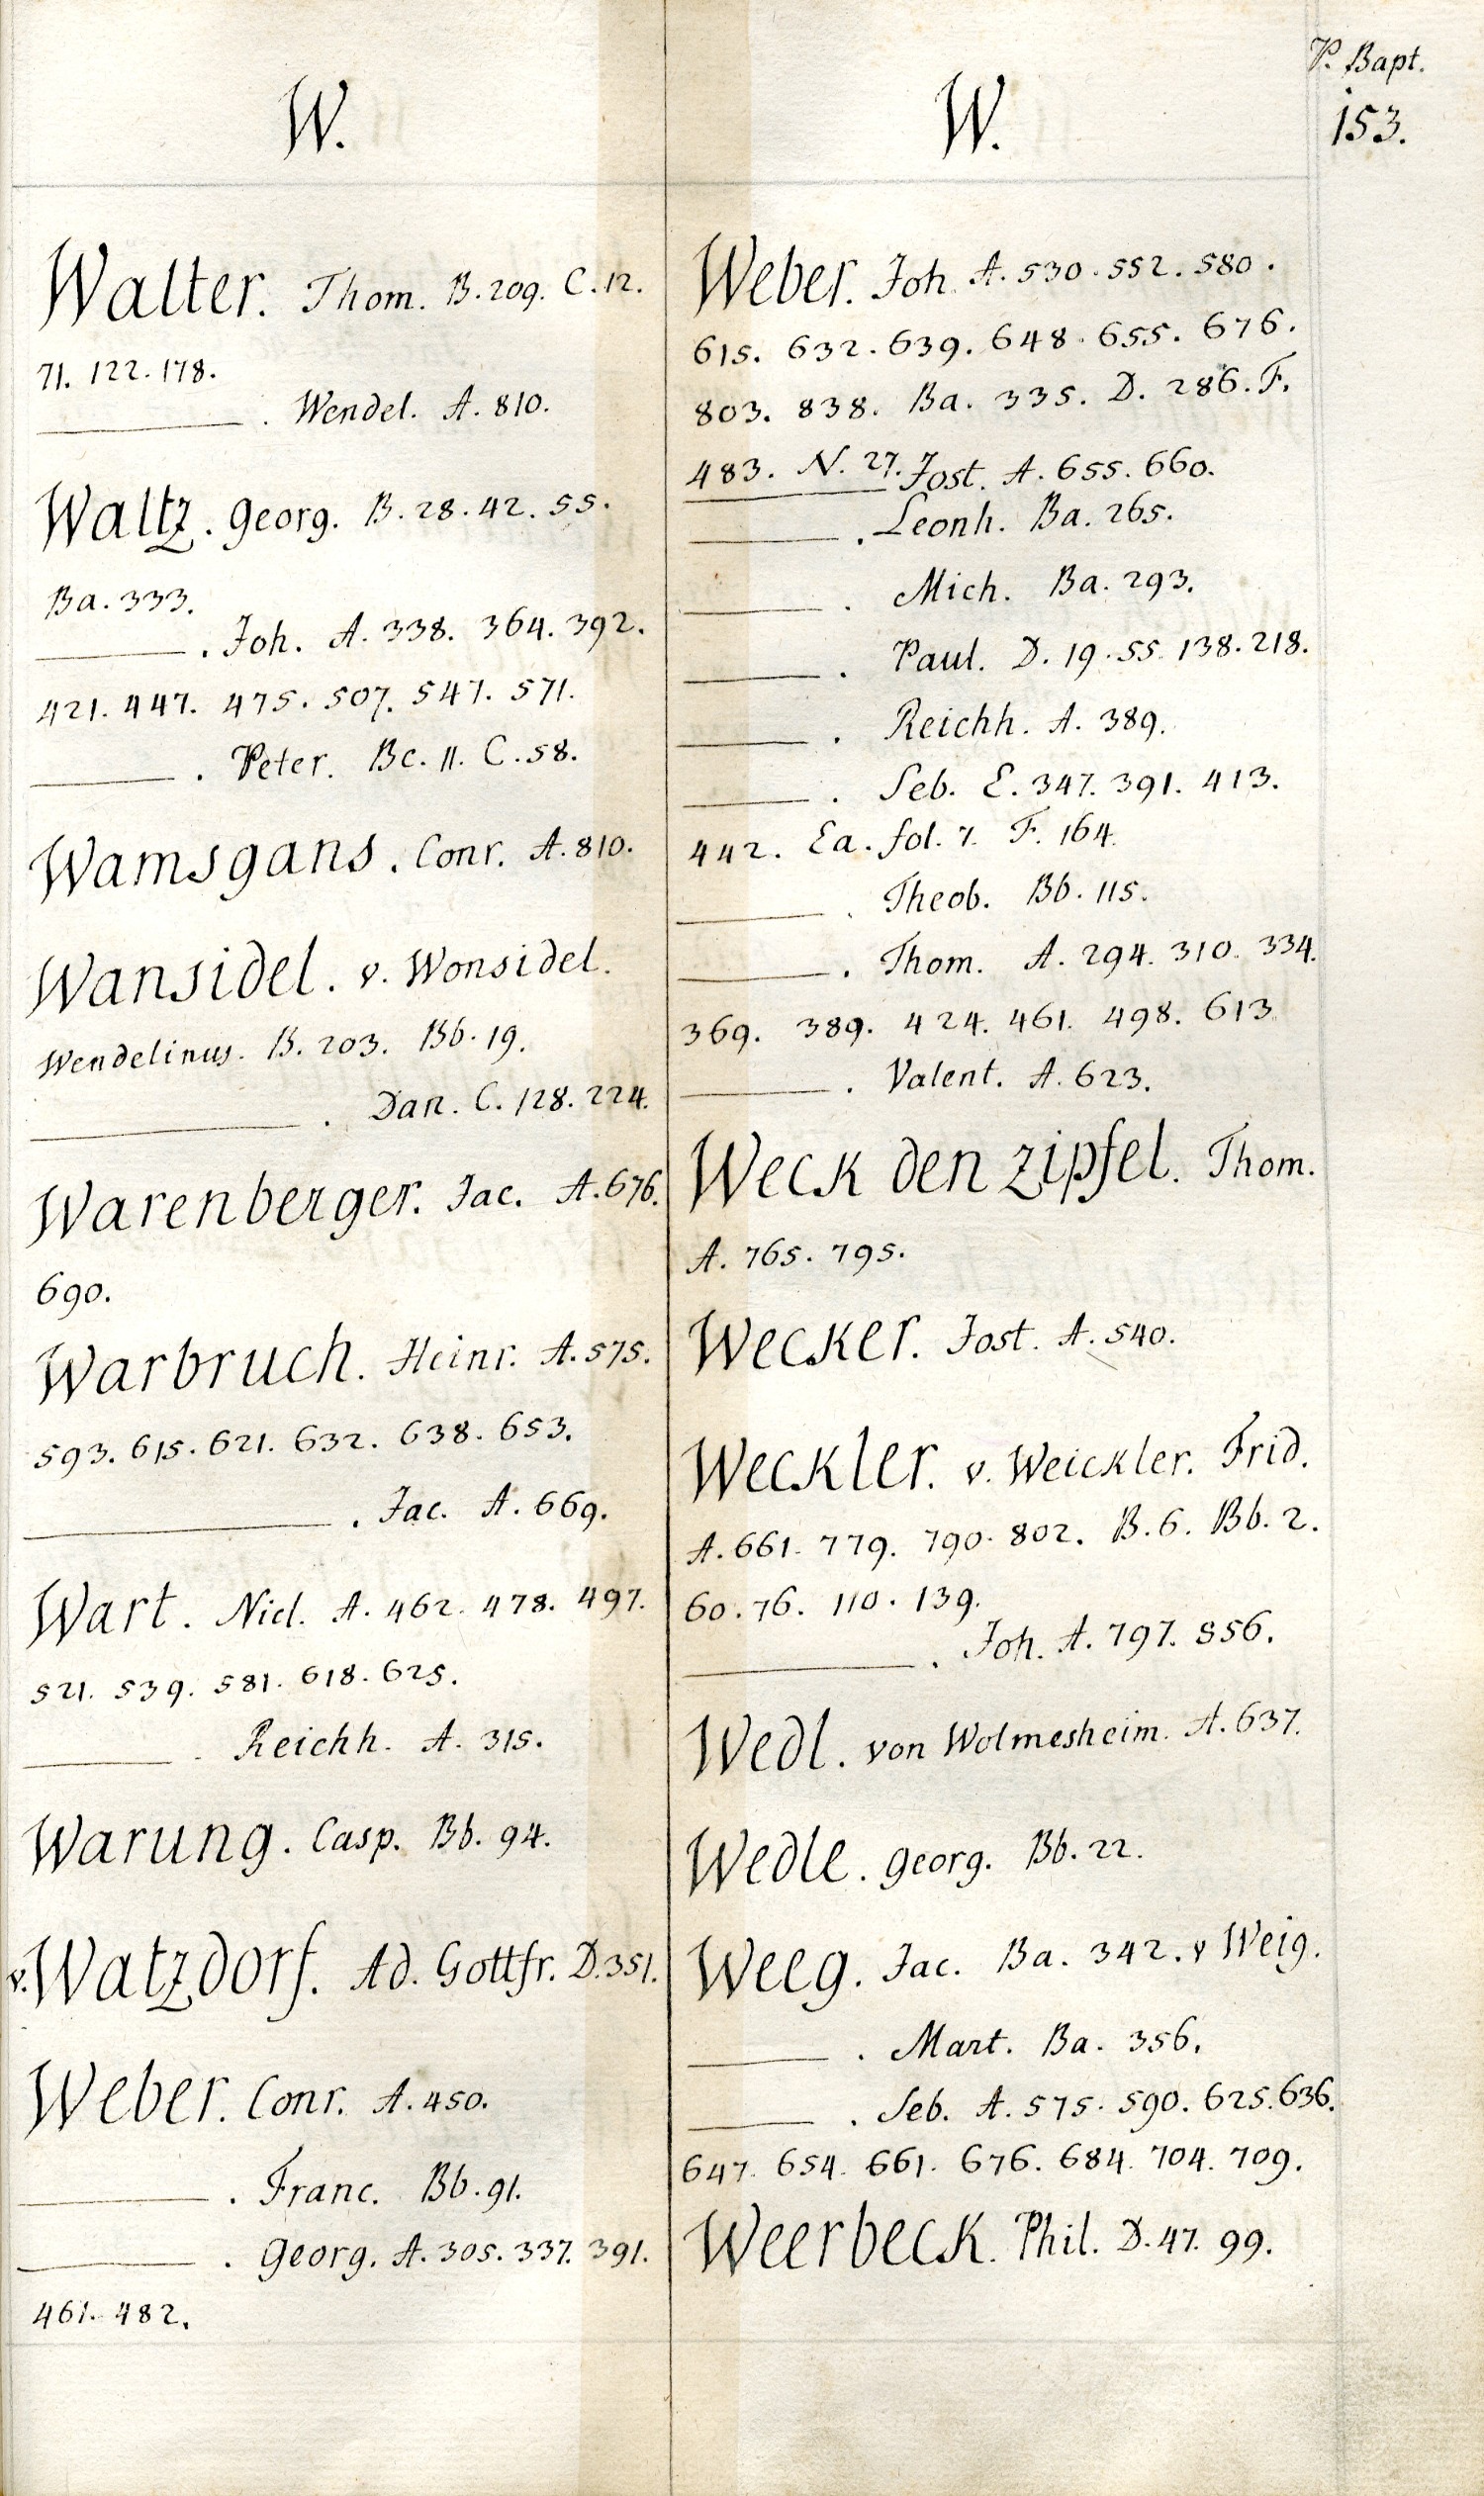 P. Bapt.
153.
W.
Walter. Thom. B. 209. C. 12.
71. 122. 178.
———. Wendel. A. 810.
Waltz. Georg. B. 28. 42. 55.
Ba. 333.
———. Joh. A. 338. 364. 392.
421. 447. 475. 507. 547. 571.
———. Peter. Bc. 11. C. 58.
Wamsgans. Conr. A. 810.
Wansidel. v. Wonsidel.
Wendelinus. B. 203. Bb. 19.
———. Dan. C. 128. 224.
Warenberger. Jac. A. 676.
690.
Warbruch. Heinr. A. 575.
593. 615. 621. 632. 638. 653.
———. Jac. A. 669.
Wart. Nicl. A. 462. 478. 497.
521. 539. 581. 618. 625.
———. Reichh. A. 315.
Warung. Casp. Bb. 94.
v. Watzdorf. Ad. Gottfr. D. 351.
Weber. Conr. A. 450.
———. Franc. Bb. 91.
———. Georg. A. 305. 337. 391.
461. 482.
W.
Weber. Joh. A. 530. 552. 580.
615. 632. 639. 648. 655. 676.
803. 838. Ba. 335. D. 286. F.
483. N. 27.
———. Jost. A. 655. 660.
———. Leonh. Ba. 265.
———. Mich. Ba. 293.
———. Paul. D. 19. 55. 138. 218.
———. Reichh. A. 389.
———. Seb. E. 347. 391. 413.
442. Ea. fol. 7. F. 164.
———. Theob. Bb. 115.
———. Thom. A. 294. 310. 334.
369. 389. 424. 461. 498. 613
———. Valent. A. 623.
Weck den zipfel. Thom.
A. 765. 795.
Wecker. Jost. A. 540.
Weckler. v. Weickler. Frid.
A. 661. 779. 790. 802. B. 6. Bb. 2.
60. 76. 110. 139.
———. Joh. A. 797. 856.
Wedl. von Wolmesheim. A. 637.
Wedle. Georg. Bb. 22.
Weeg. Jac. Ba. 342. v Weig.
———. Mart. Ba. 356.
———. Seb. A. 575. 590. 625. 636.
647. 654. 661. 676. 684. 704. 709.
Weerbeck. Phil. D. 47. 99.